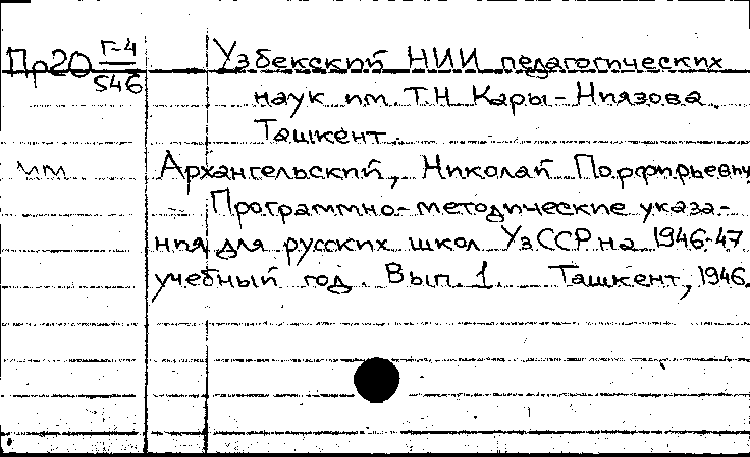 Пр20 Г-4/546 Узбекский НИИ педагогических
наук им. Т.Н Кары-Ниязова.
Ташкент.
им Архангельский, Николай Порфирьевич
Программно-методические указа-
ния для русских школ УзССР на 1946-47
учебный год. Вып. 1. Ташкент, 1946.